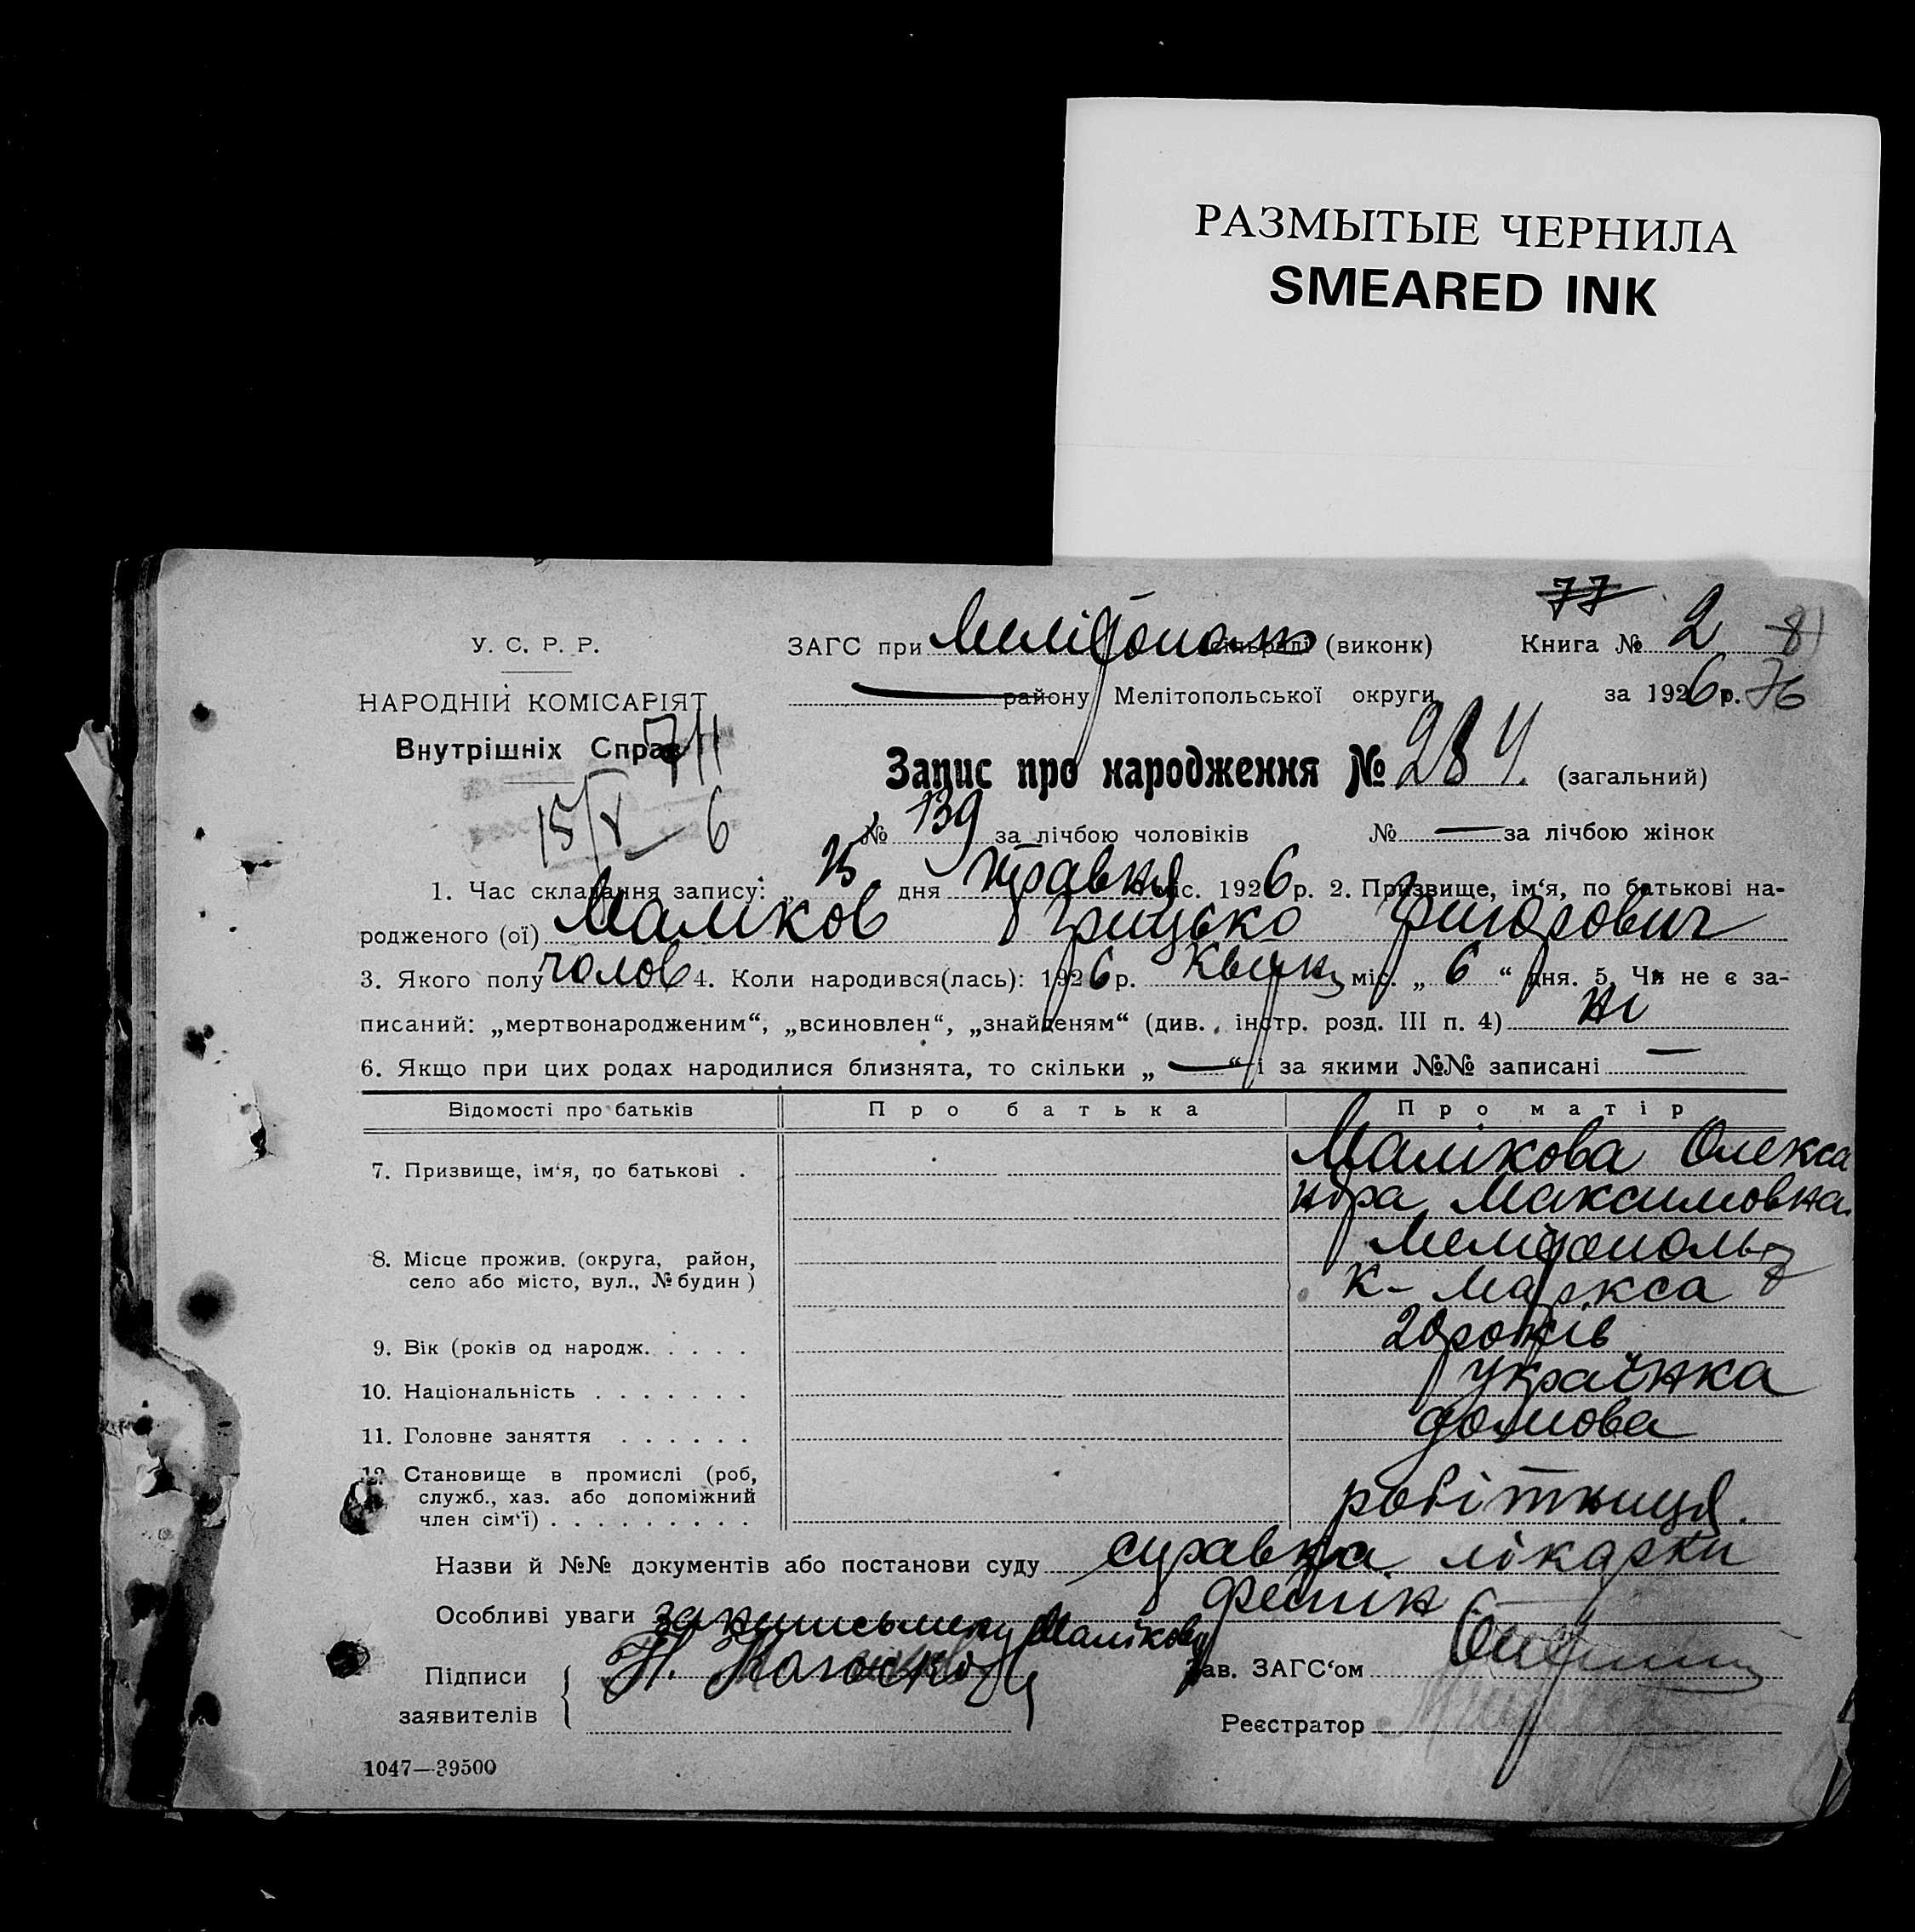 РАЗМЫТЫЕ ЧЕРНИЛА
SMEARED INK
77
У. С. Р. Р.
ЗАГС при Мелітополь сільраді (виконк)
Книга № 2 81
НАРОДНІЙ КОМІСАРІЯТ
району Мелітопольської округи
за 1926 р. 76
Внутрішніх Справ
711
Запис про народження № 284. (загальний)
15/V 6
№ 139 за лічбою чоловіків № — за лічбою жінок
1. Час складання запису: „ 15 дня травня міс. 1926 р. 2. Призвище, ім‘я, по батькові на-
родженого (ої) Маліков Грицько Григорович
3. Якого полу чолов 4. Коли народився(лась): 1926 р. Квітн міс. „ 6 “ дня. 5. Чи не є за-
писаний: „мертвонародженим“, „всиновлен“, „знайденям“ (див. інстр. розд. III п. 4) ні
6. Якщо при цих родах народилися близнята, то скільки „ — “ і за якими №№ записані —
Відомості про батьків Про батька Про матір
7. Призвище, ім‘я, по батькові . Малікова Олекса
ндра Максимовна.
8. Місце прожив. (округа, район, Мелітополь
село або місто, вул., № будин ) К- Маркса
9. Вік (років од народж. . . . . 20 років
10. Національність . . . . . . . українка
11. Головне заняття . . . . . . домова
12. Становище в промислі (роб, робітниця.
служб., хаз. або допоміжний
член сім‘ї) . . . . . . . . .
Назви й №№ документів або постанови суду справка лікарки
Особливі уваги Малікову
Підписи
заявителів
Зав. ЗАГС‘ом
Реєстратор
1047—39500